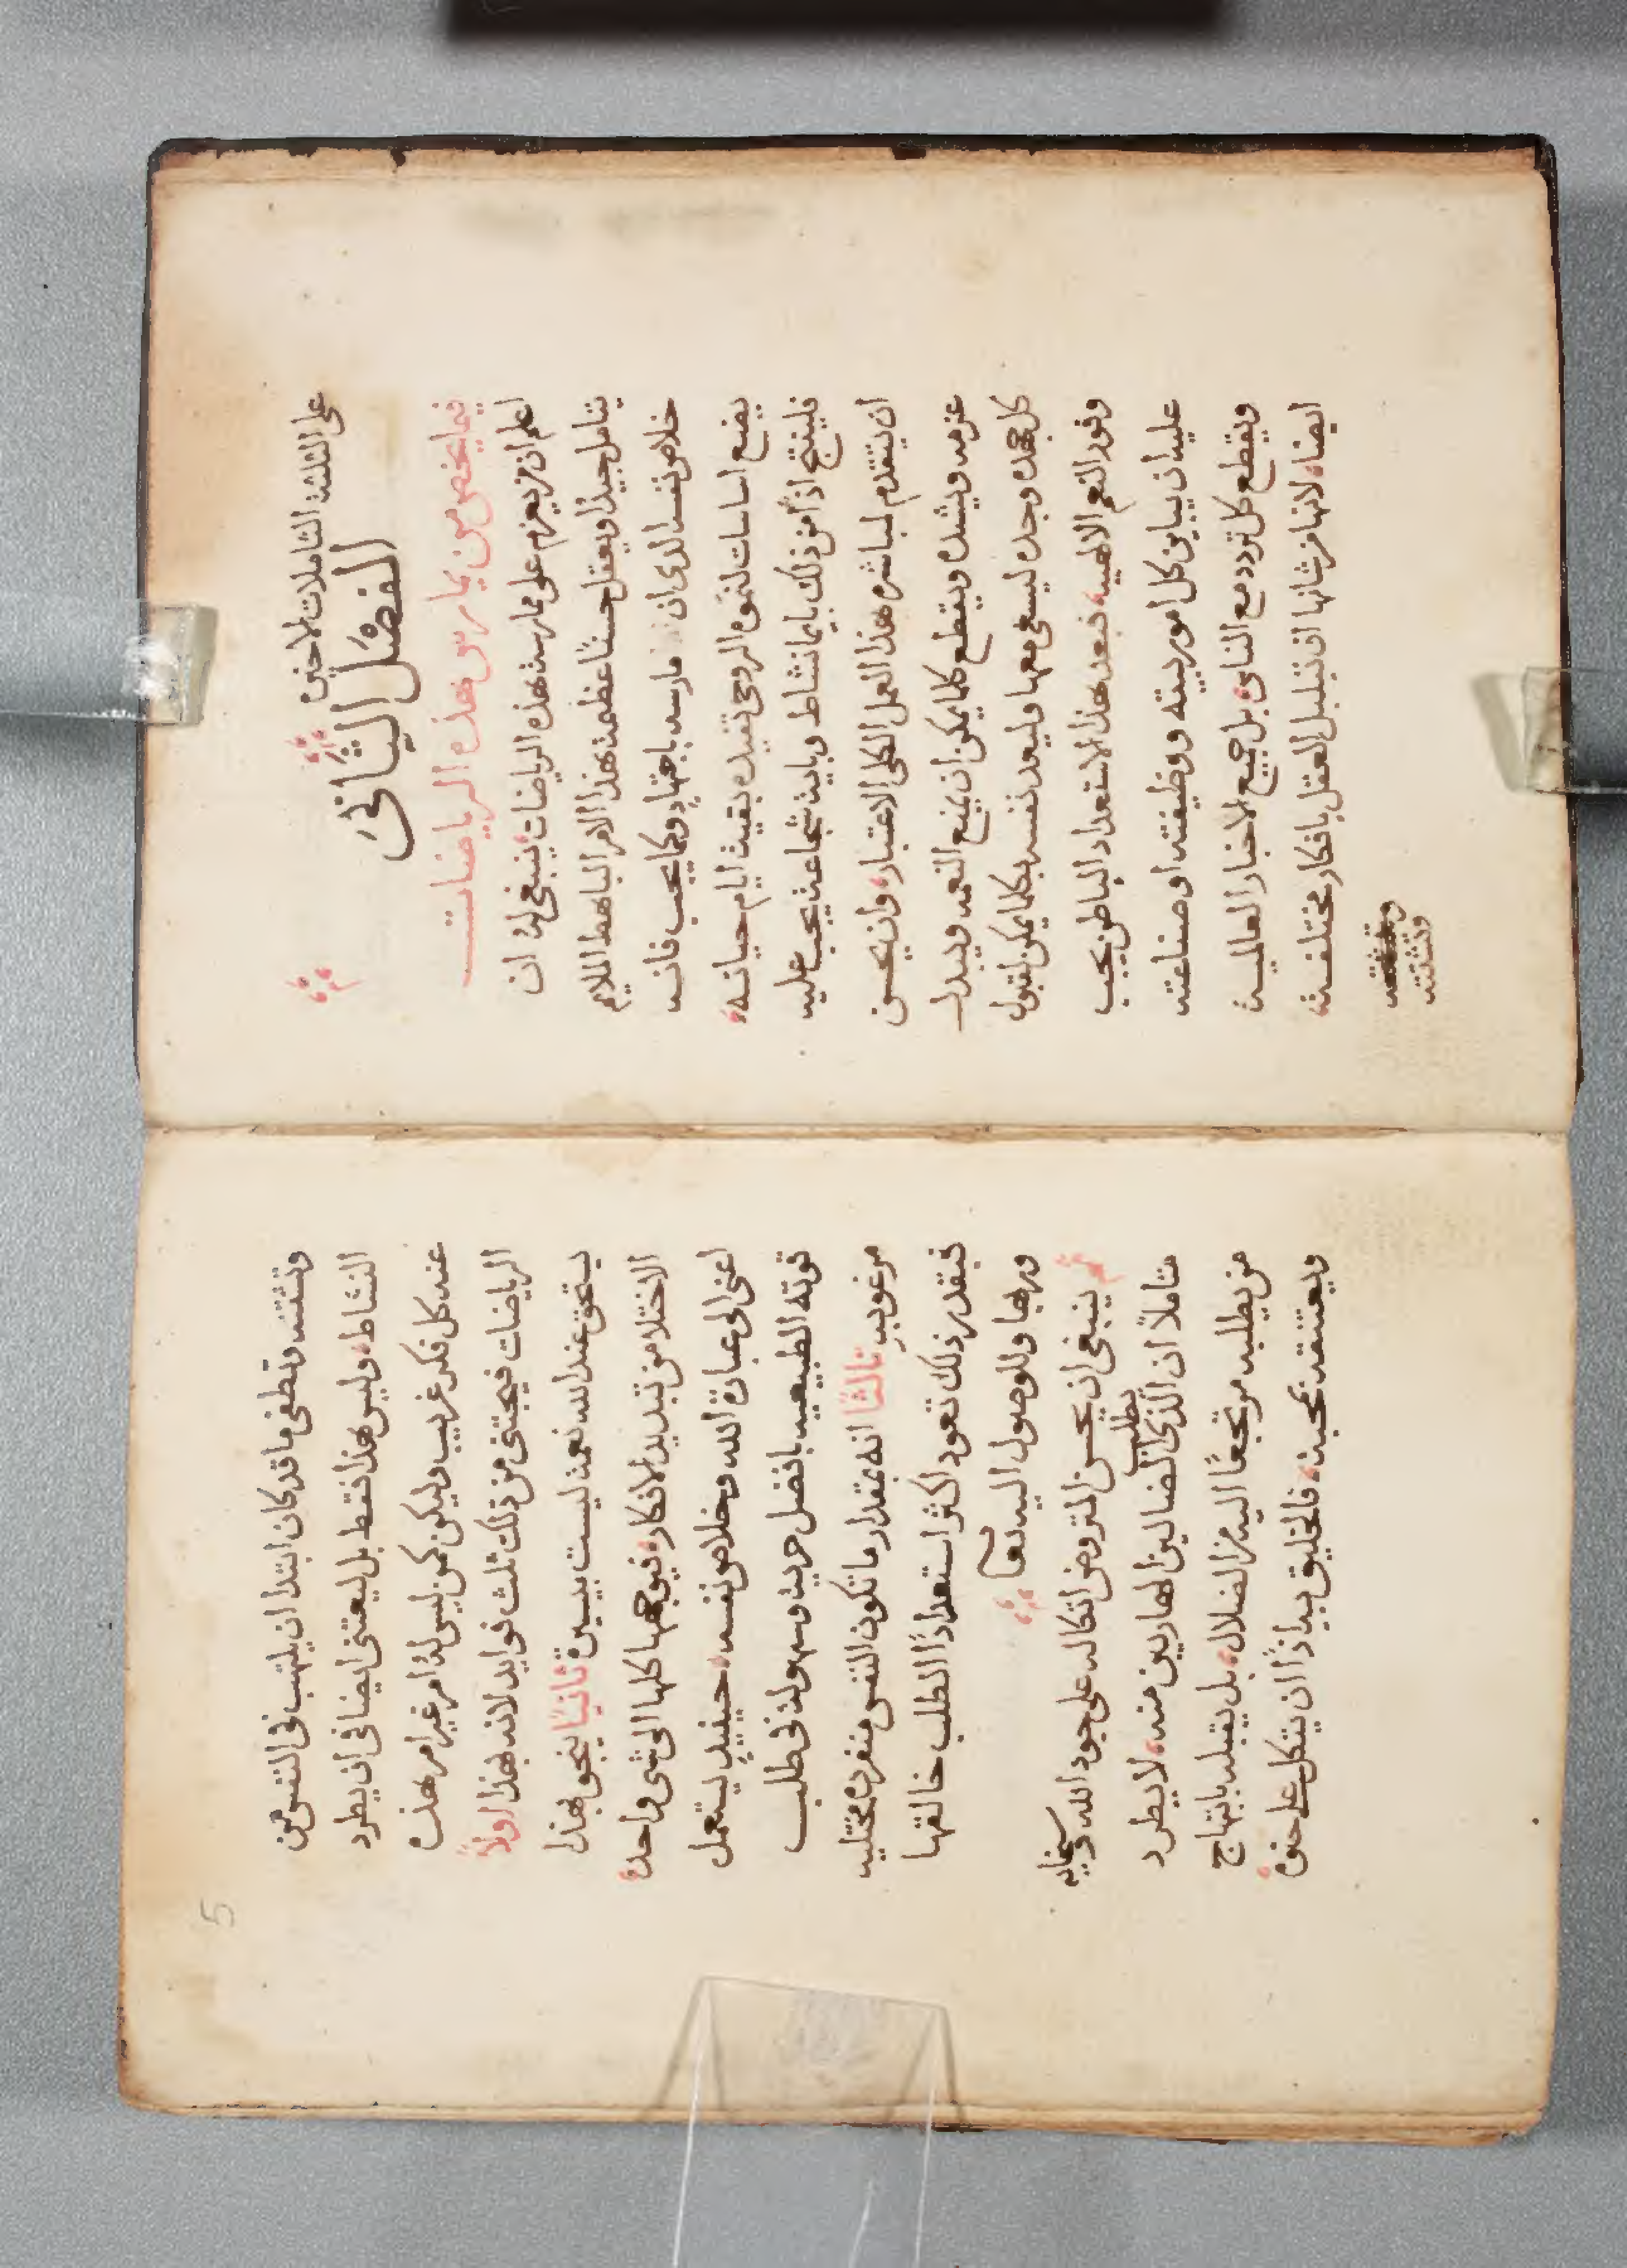 على الثلثة التاملات الاخيرة
الفصل الثاني
فيما يخص من يمارس هذه الرياضات
اعلم ان من يعزم على ممارسة هذه الرياضات، ينبغي له ان
يتامل جيدا ويعقل حسنًا عظمة هذا الامر الباهظ الملايم
خلاص نفسه الذي ان مارسه باجتهادٍ وكما يجب فانه
يضع اساسات لنموه الروحي تفيده بقيت ايام حياته،
فلينتج اذًا من ذلك بايما نشاط وباية شجاعة يجب عليه
ان يتقدم لمباشرة هذا العمل الكلي الاعتبار، وان يحسن
عزمه ويشده ويقطع كلما يمكن ان يمنع النعمه ويبدل
كل جهده وجده ليسعى معها وليعد نفسه بكلما يمكن لقبول
وفور النعم الالهيه، فبعد هذا الاستعداد الباطن يجب
عليه ان يباين كل امور بيته ووظيفته او صناعته
ويقطع كل تردد مع الناس، بل جميع الاخبار العالمية
ايضا، لانها من شانها ان تبلبل العقل بافكار مختلفة،
وتشتته
5
وتشتته وتطفي ما قد كان ابتدا ان يلتهب في النفس من
النشاط، وليس هذا فقط بل ليعتني ايضا في ان يطرد
عنه كل فكر غريب وليكن كمن ليس له امر غير امر هذه
الرياضات فيجتني من ذلك ثلث فوايد لانه بهذا اولاً
يستحق عند الله نعمة ليست بيسيرة ثانيًا ينجو بهذا
الاختلا من تبديد الافكار، فيوجهها كلها الى شي واحد،
اعني الى عبادة الله وخلاص نفسه، حينيذٍ ليستعمل
قوته الطبيعيه بافضل حرية وسهولة في طلب
مرغوبه ثالثًا انه بمقدار ما تكون النفس منفردة مختليه
فبقدر ذلك تعود اكثر استعدادًا لطلب خالقها
وربها وللوصول اليه تعا
ثم ينبغي ان يحسن المتروض اتكاله على جود الله وسخايه
متاملاً ان الذي يطلب الضالين الهاربين منه، لا يطرد
من يطلبه مرتجعًا اليه من الضلال، بل يقبله بابتهاج
ويعتنقه بمحبة، فالخليق بنا اذًا ان يتكل على حنوه،